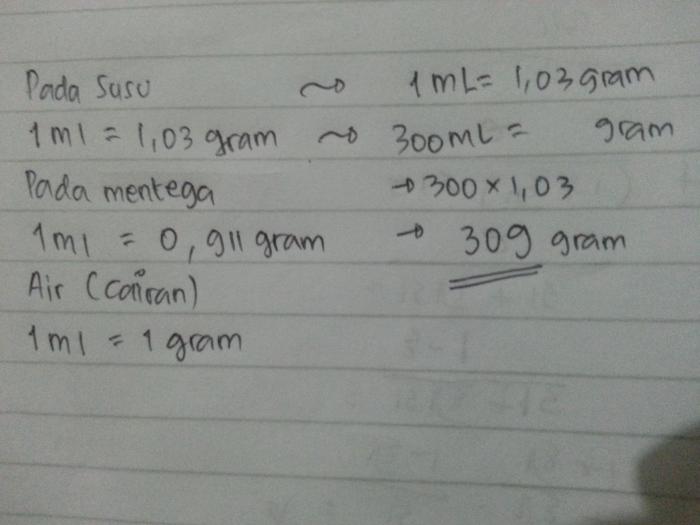 Pada susu ~> 1 mL = 1,03 gram
1 ml = 1,03 gram ~> 300 mL = gram
Pada mentega → 300 × 1,03
1 ml = 0,911 gram → 309 gram
Air (cairan)
1 ml = 1 gram